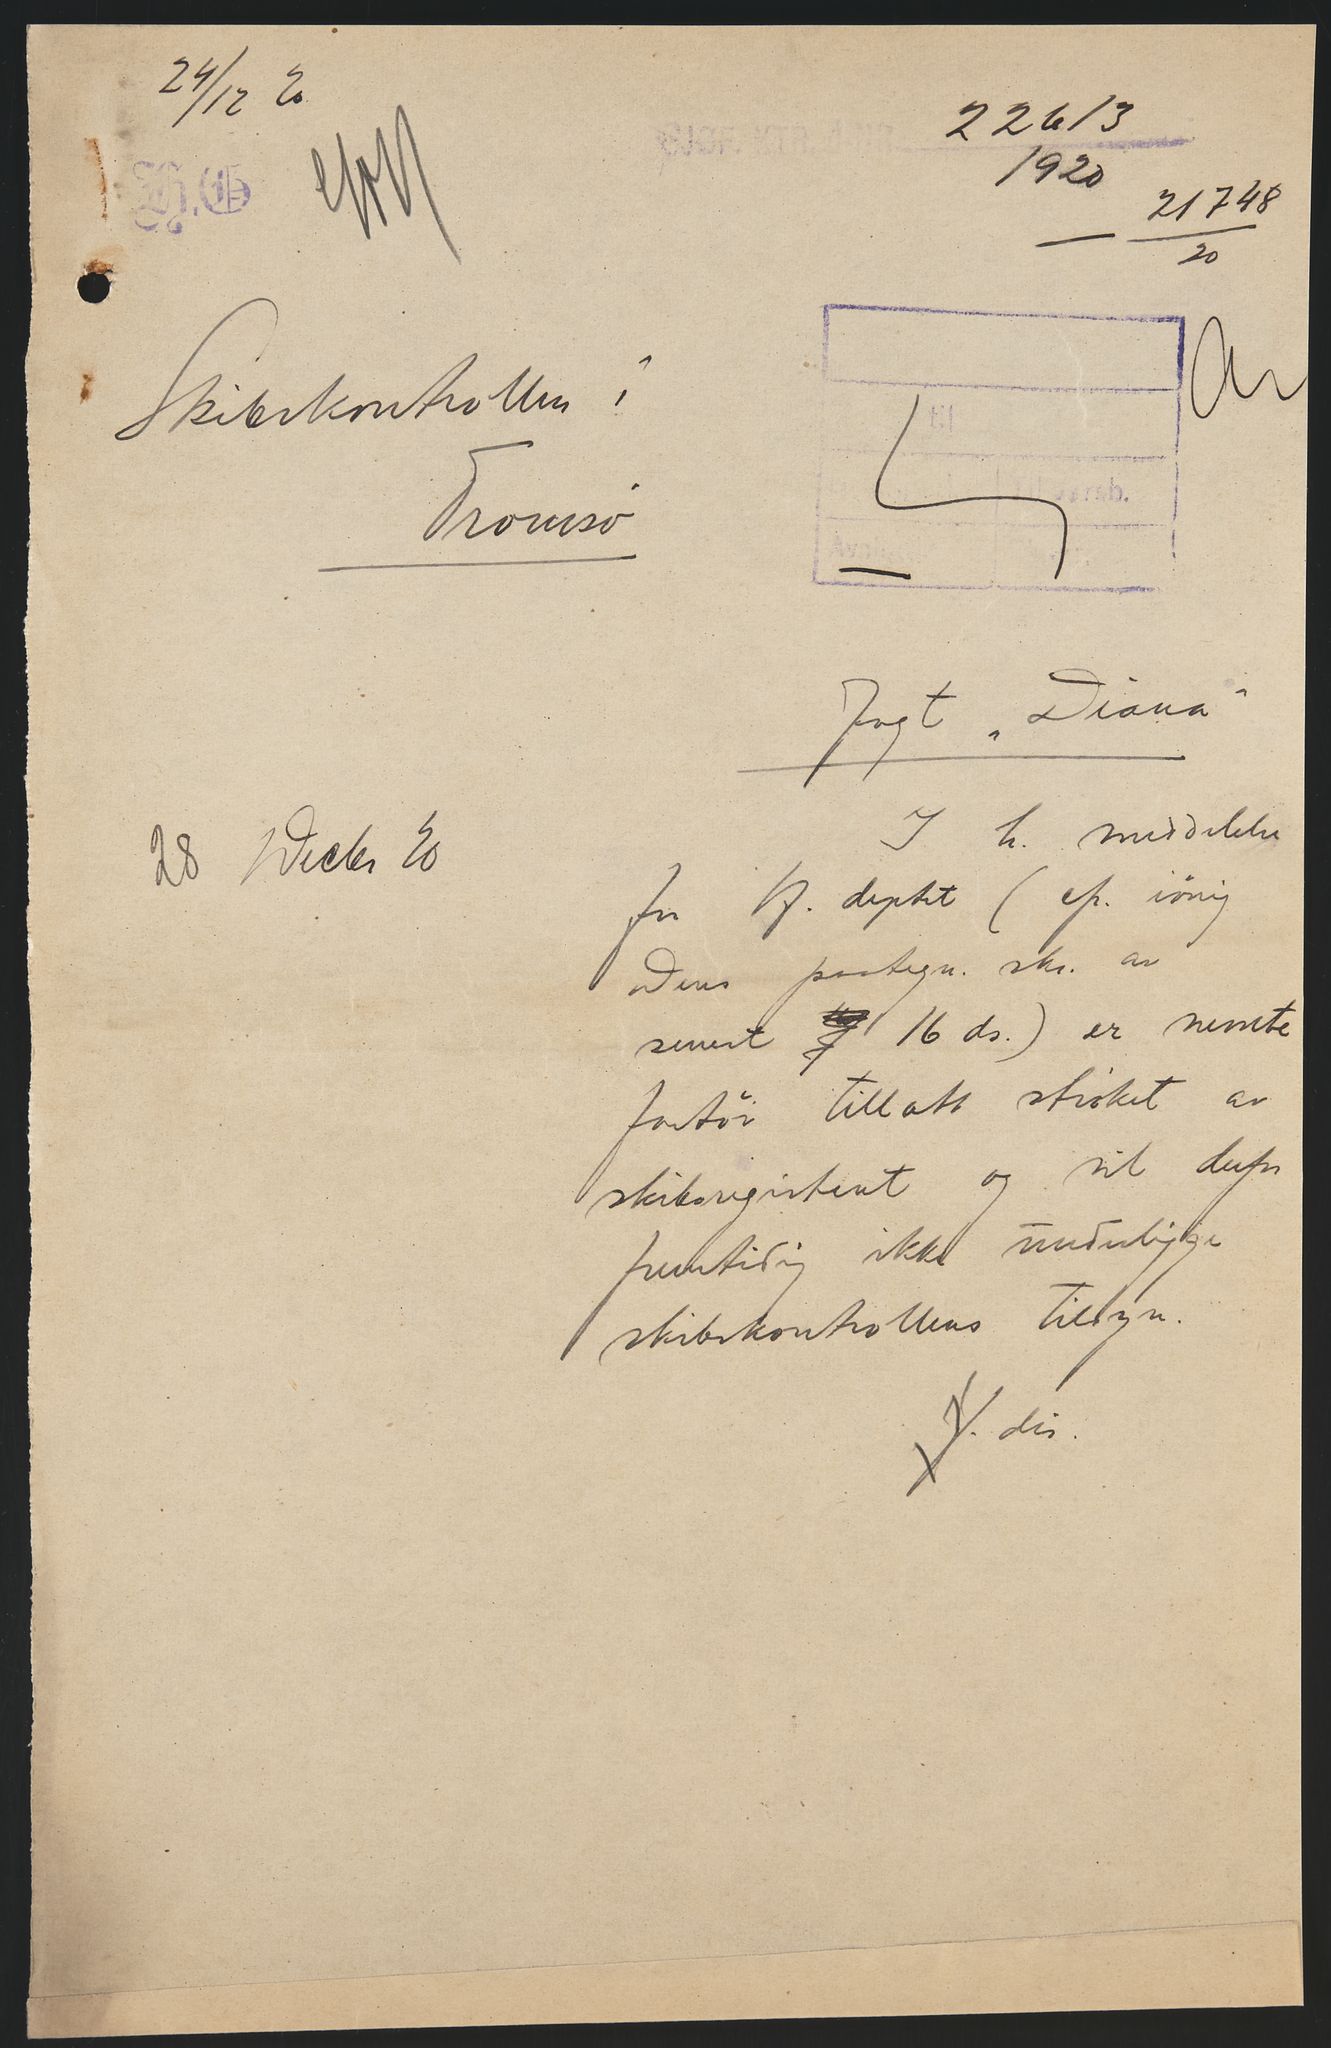 24/12 20
22613
1920
21748
20
H.O
Skibskontrollen i
Tromsø
til
Jagt „Diana"
28 Decbr 20
I h. meddelelse
fra H. deptet (cfr. iövrig
Deres paategn. skr. av
senest 16 ds.) er nevnte
fartöi tillatt strøket av
skibsregisteret og vil derfor
fremtidig ikke underligge
skibskontrollens tilsyn.
dir.